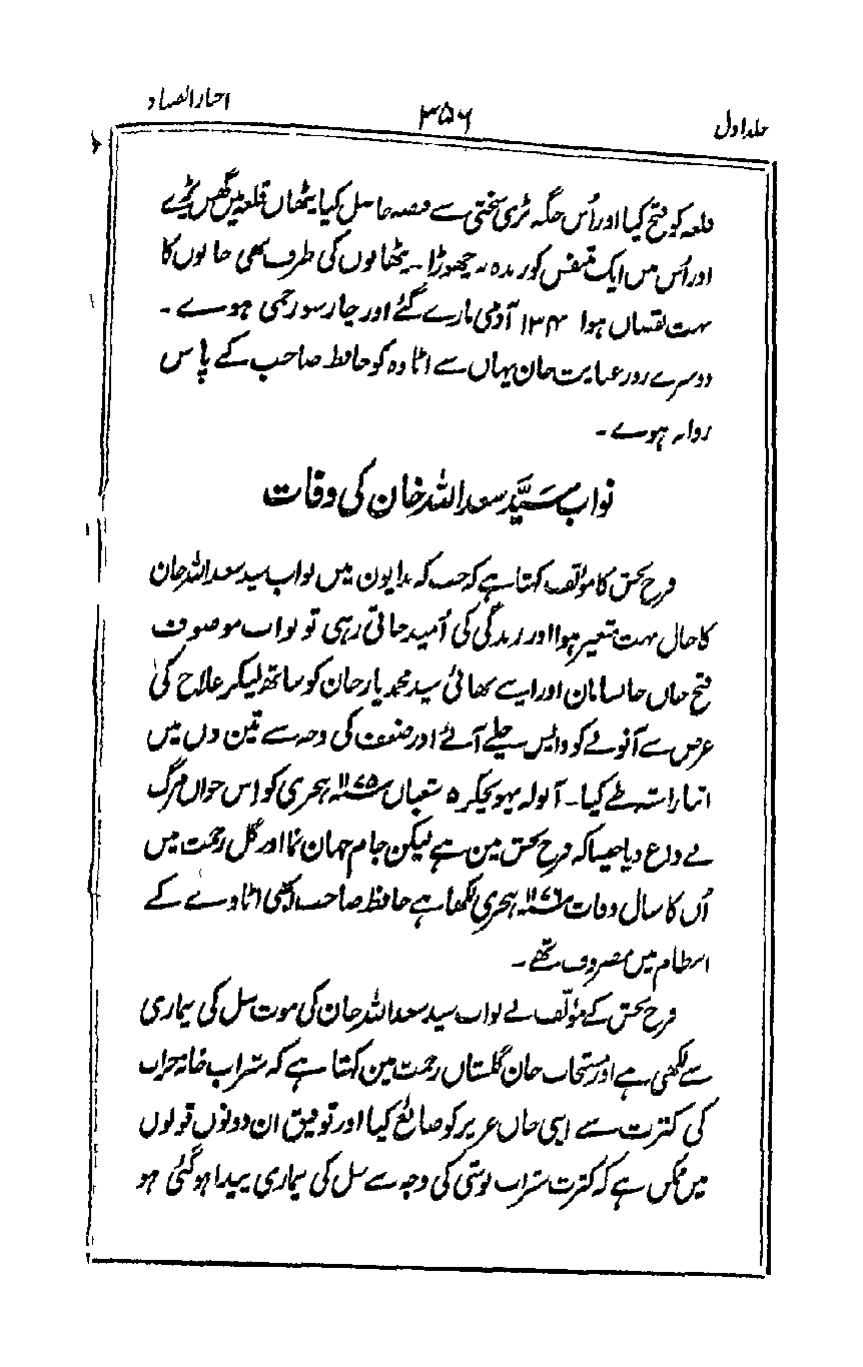 جلد اول ۳۵۶ اخبار الصنادید
قلعہ کو فتح کیا اور اُس جگہ بڑی سختی سے قبضہ حاصل کیا پٹھان قلعہ میں گھس پڑے
اور اُس میں ایک متنفس کو زندہ نہ چھوڑا۔ پٹھانوں کی طرف بھی جانوں کا
بہت نقصان ہوا ۱۳۴ آدمی مارے گئے اور چار سو زخمی ہوے۔
دوسرے روز عنایت خان یہاں سے اٹاوہ کو حافظ صاحب کے پاس
روانہ ہوے۔
نواب سَیَّد سعد اللہ خان کی وفات
فرح بخش کا مؤلف کہتا ہے کہ جب کہ بدایون میں نواب سید سعد اللہ خان
کا حال بہت متغیر ہوا اور زندگی کی اُمید جاتی رہی تو نواب موصوف
فتح خان خانسامان اور اپنے بھائی سید محمد یار خان کو ساتھ لیکر علاج کی
غرض سے آنولے کو واپس چلے آئے اور ضعف کی وجہ سے تین دن میں
اتنا راستہ طے کیا۔ آنولہ پہونچکر ۵ شعبان ۱۱۷۵ ہجری کو اس جوان مرگ
نے وداع دیا جیسا کہ فرح بخش مین ہے لیکن جام جہان نما اور گل رحمت میں
اُن کا سال وفات ۱۱۷۶ ہجری لکھا ہے حافظ صاحب ابھی اٹاوے کے
انتظام میں مصروف تھے۔
فرح بخش کے مؤلف نے نواب سید سعد اللہ خان کی موت سل کی بیماری
سے لکھی ہے اور مستجاب خان گلستان رحمت مین کہتا ہے کہ شراب خانہ خراب
کی کثرت سے اپنی جان عزیز کو ضائع کیا اور توفیق ان دونوں قولوں
میں ممکن ہے کہ کثرت شراب نوشی کی وجہ سے سل کی بیماری پیدا ہو گئی ہو